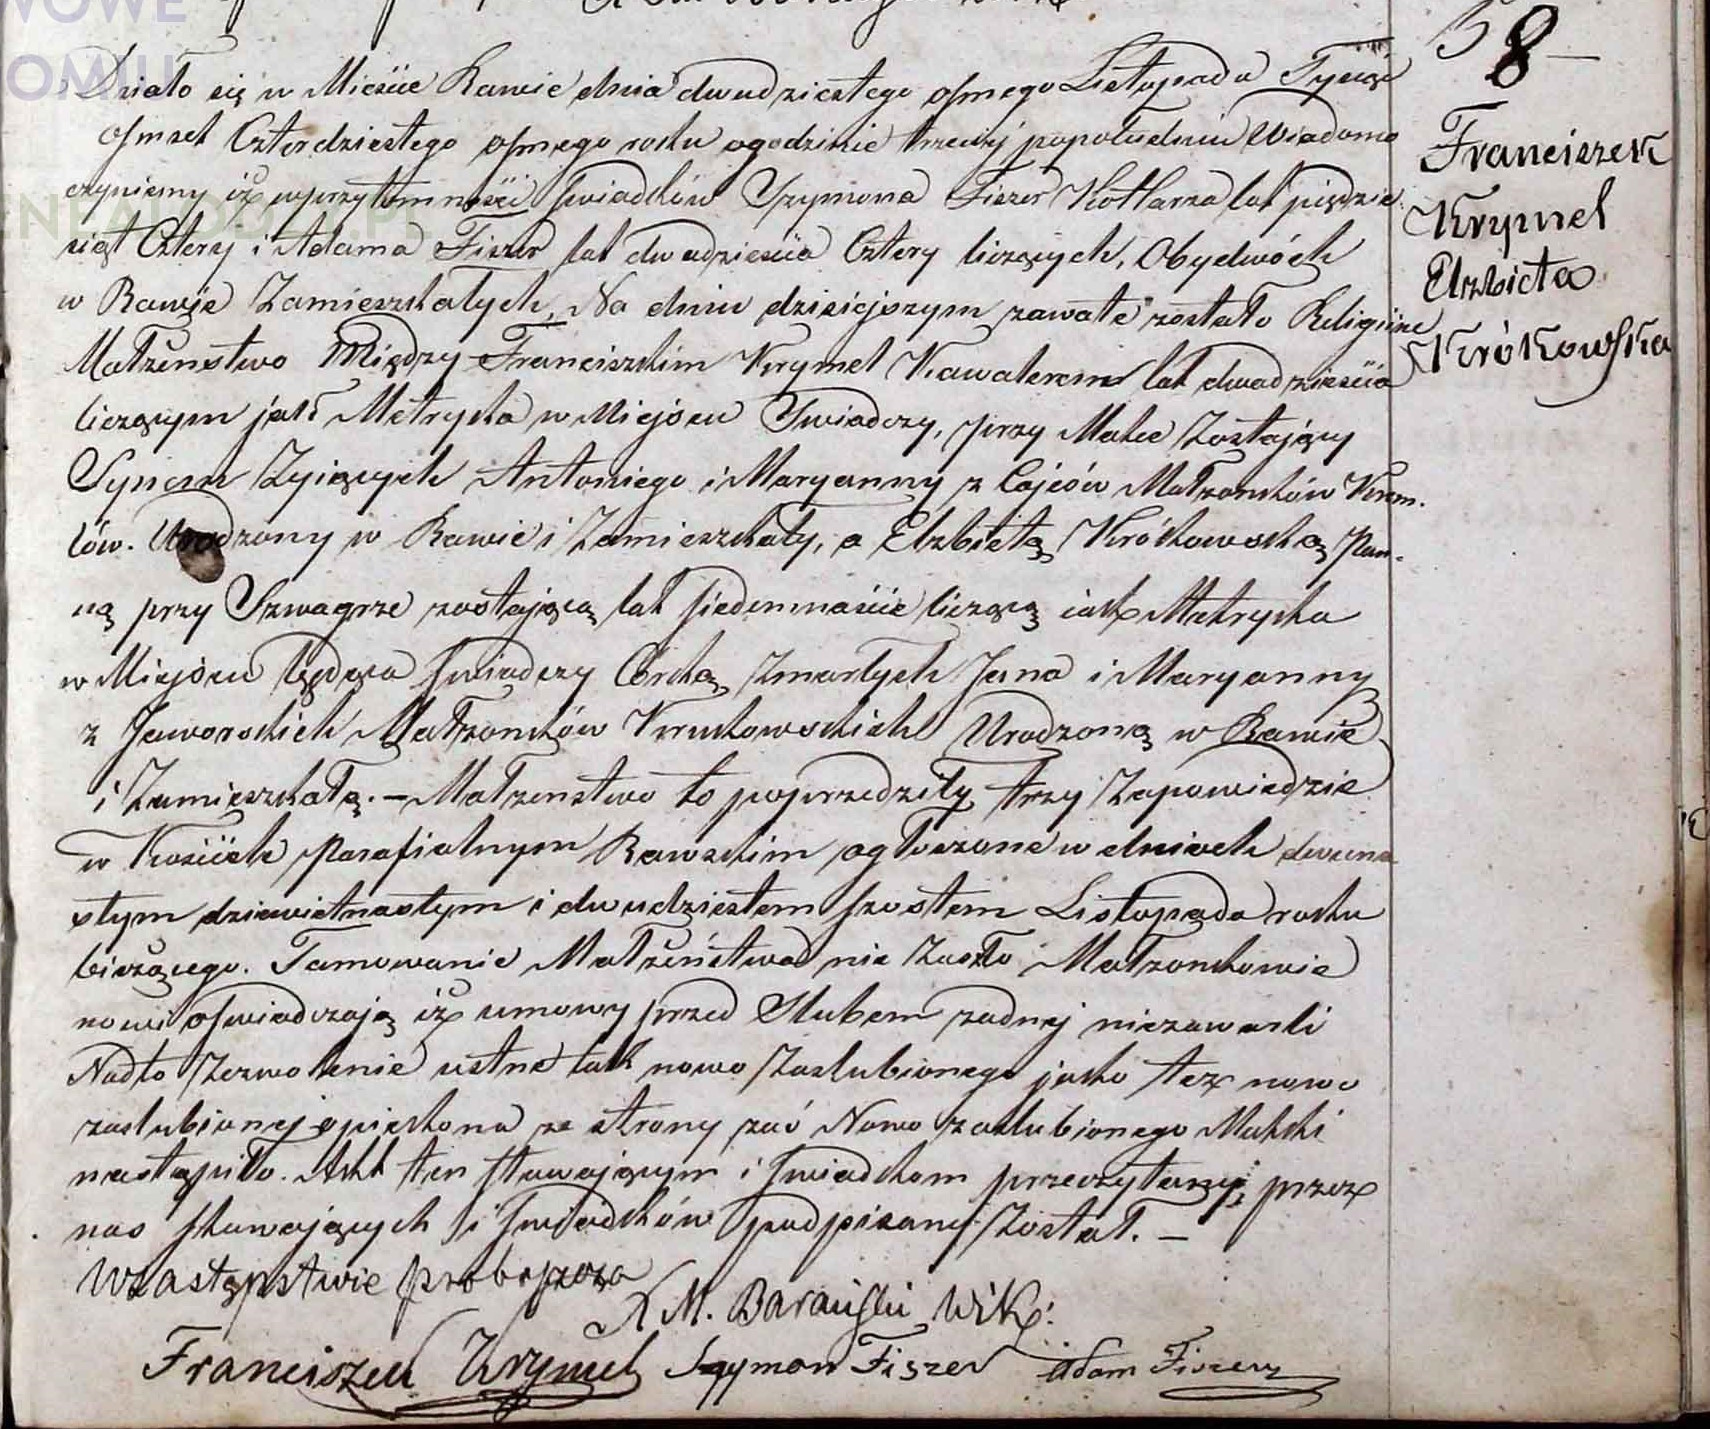 58
Franciszek
Krymel
Elzbieta
Krókowska
Działo się w Mieście Rawie dnia dwudziestego osmego Listopada Tysiąc
osmset Czterdziestego osmego roku ogodzinie trzeciy popołudniu Wiadomo
czyniemy iż wprzytomności swiadków Szymona Fiszer Kotlarza lat pięćdzie
siąt Cztery i Adama Fiszer lat dwadzieścia Cztery liczących, Obydwóch
w Rawie Zamieszkałych, Na dniu dzisiejszym zawarte zostało Religiine
Małżenstwo Między Franciszkim Krymel Kawalerem lat dwadzieścia
liczącym jak Metryka w Miejscu Swiadczy, przy Matce Zostający
Synem Zyiących Antoniego i Maryanny z Małzonków Krym.
lów. Urodzony w Rawie i Zamieszkały, a Elzbietą Krókowską Pan-
ną przy Szwagrze zostającą lat siedemnaście liczącą iak Metryka
w Miejscu będąca swiadczy Córką Zmarłych Jana i Maryanny
z Jaworskich Małzonków Krukowskich Urodzoną w Rawie
i Zamieszkałą. - Małzenstwo to poprzedziły trzy Zapowiedzie
w Kościele Parafialnym Rawskim ogłoszone w dniach dwuna
stym dziewiętnastym i dwudziestem szostem Listopada roku
bieżącego. Tamowanie Małżeństwa nie Zaszło Małzonkowie
nowi oswiadczają iż umowy przed Slubem zadnej niezawarli
Nadto Zezwolenie ustne tak nowo Zaslubionego jako tez nowo
zaslubionej opiekona ze strony zaś Nowo zaslubionego Matki
nastąpiło. Akt ten Stawającym i Swiadkom przeczytany, przez
nas Stawających i Swiadków podpisany Został. -
W zastępstwie proboszcza
X M. Barański Wik:
Franciszek Krymel Szymon Fiszer Adam Fiszer